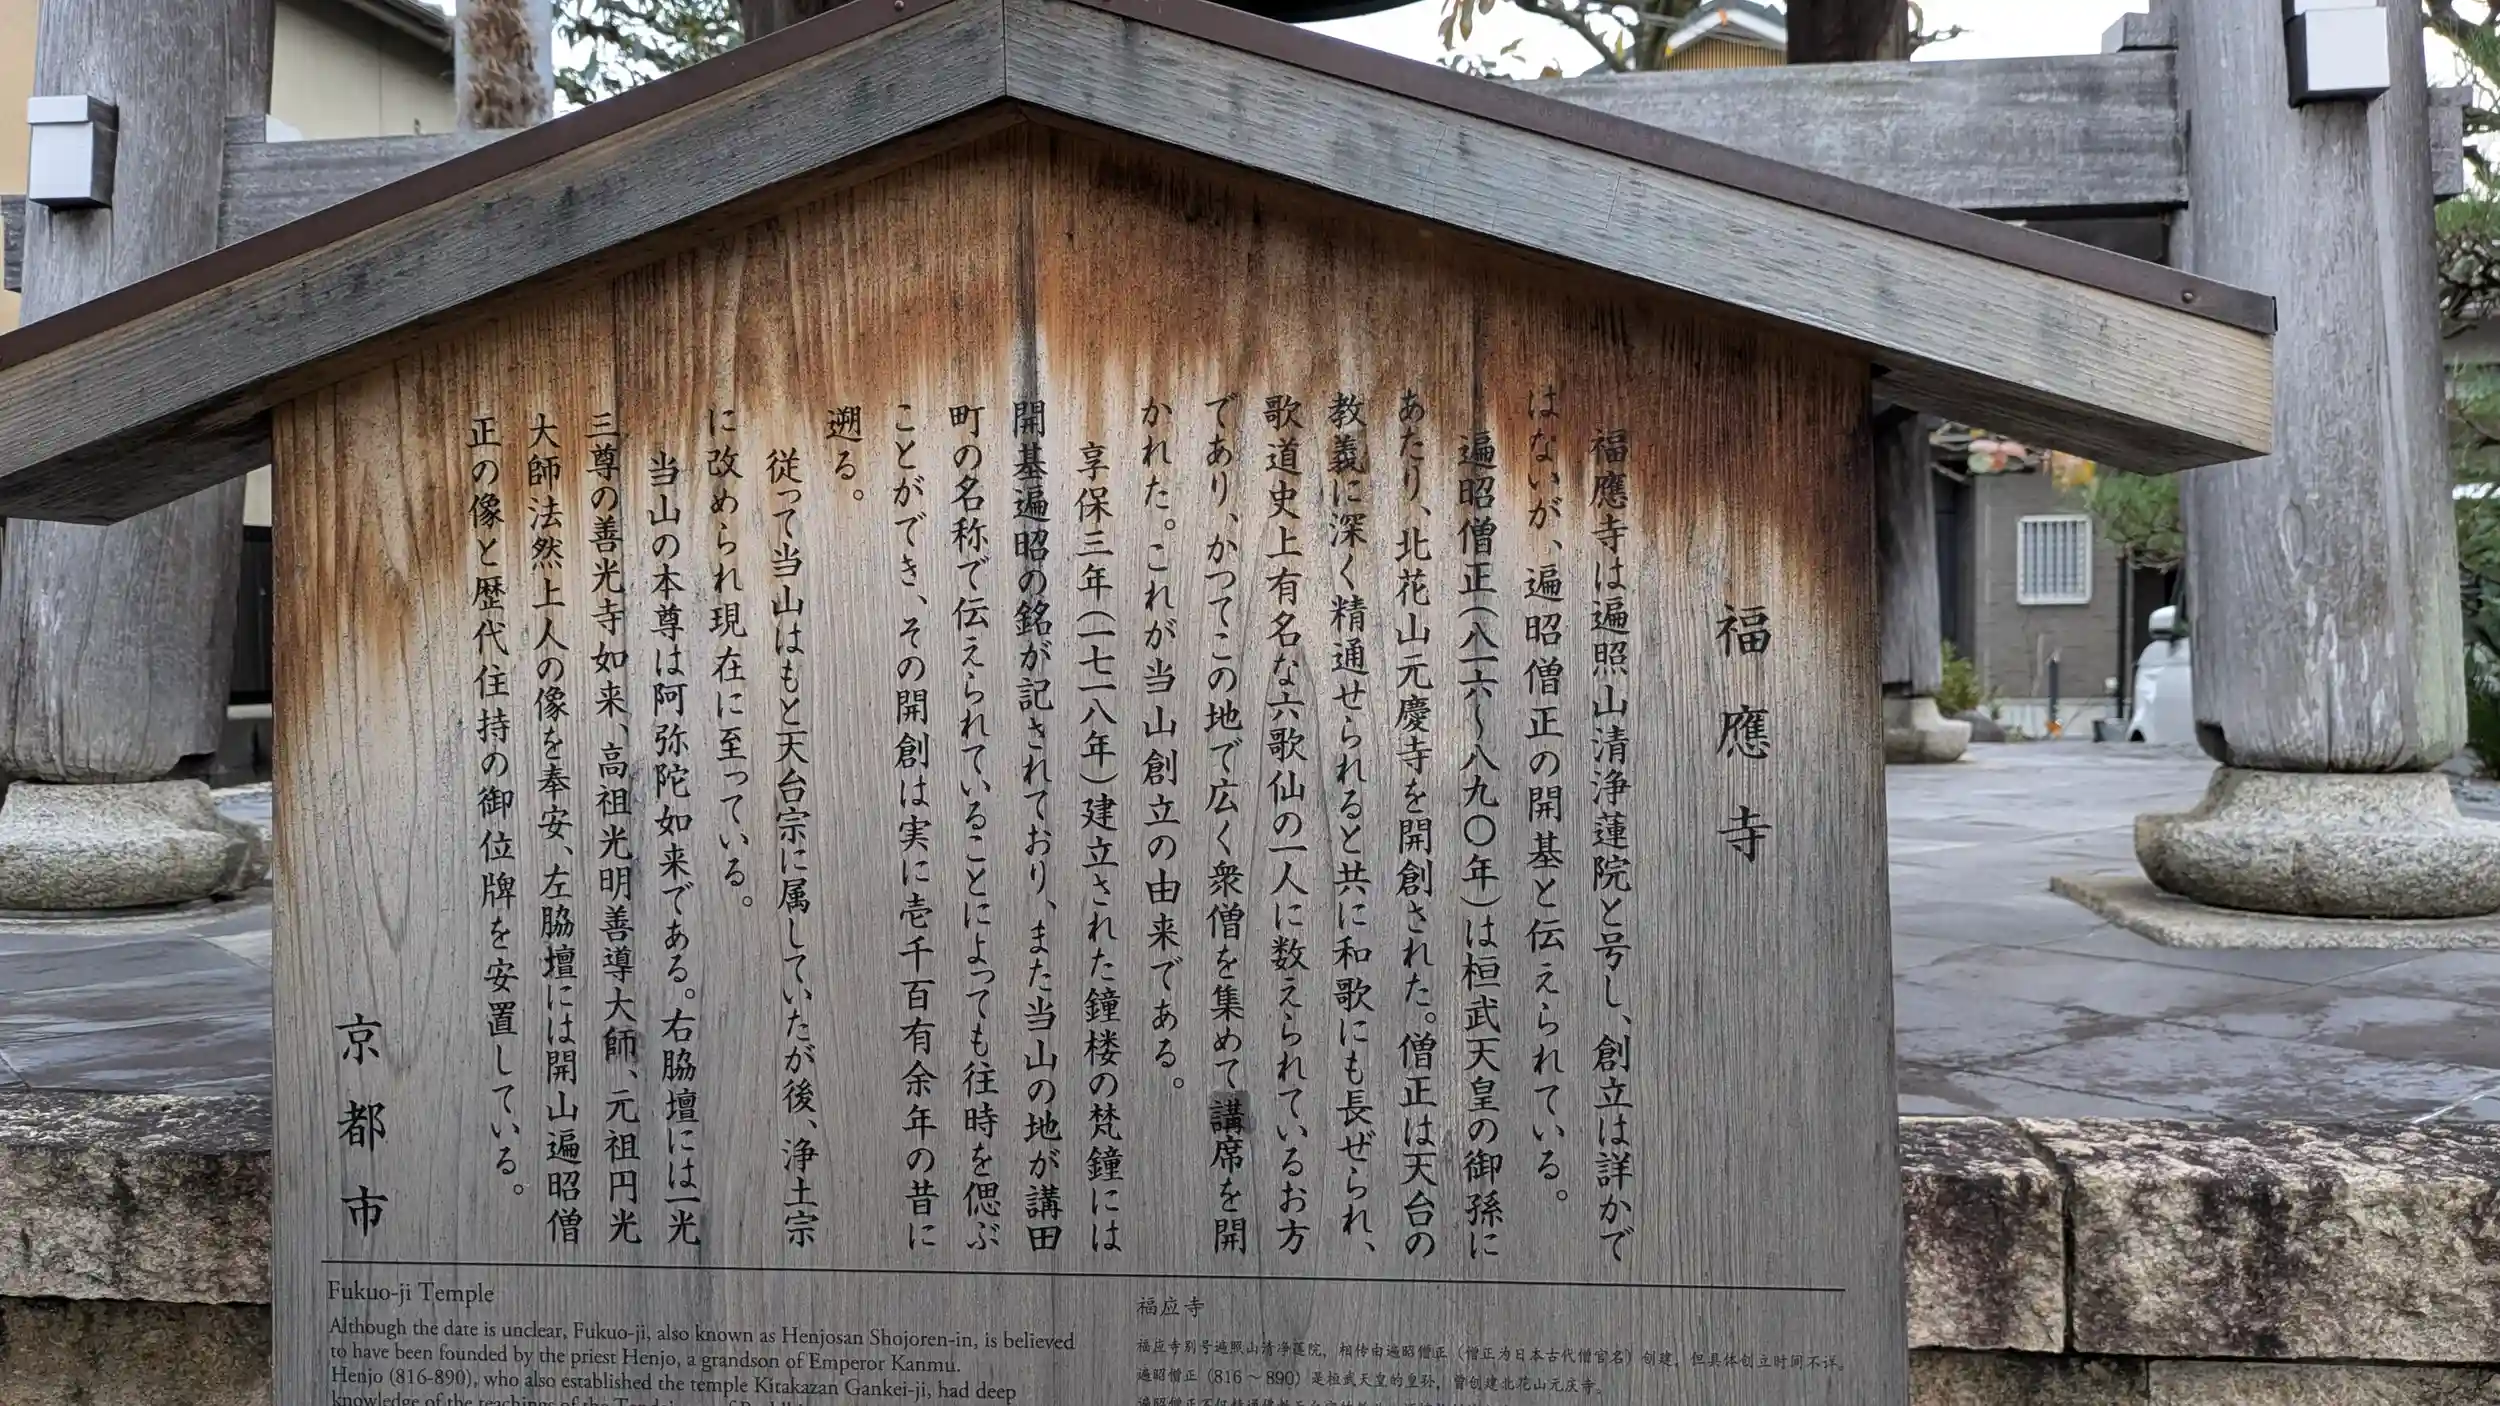 福應寺
福應寺は遍照山清浄蓮院と号し、創立は詳かで
はないが、遍昭僧正の開基と伝えられている。
遍昭僧正(八一六〜八九〇年)は桓武天皇の御孫に
あたり、北花山元慶寺を開創された。僧正は天台の
教義に深く精通せられると共に和歌にも長ぜられ、
歌道史上有名な六歌仙の一人に数えられているお方
であり、かつてこの地で広く衆僧を集めて講席を開
かれた。これが当山創立の由来である。
享保三年(一七一八年)建立された鐘楼の梵鐘には
開基遍昭の銘が記されており、また当山の地が講田
町の名称で伝えられていることによっても往時を偲ぶ
ことができ、その開創は実に壱千百有余年の昔に
遡る。
従って当山はもと天台宗に属していたが後、浄土宗
に改められ現在に至っている。
当山の本尊は阿弥陀如来である。右脇壇には一光
三尊の善光寺如来、高祖光明善導大師、元祖円光
大師法然上人の像を奉安、左脇壇には開山遍昭僧
正の像と歴代住持の御位牌を安置している。
京都市
Fukuo-ji Temple
Although the date is unclear, Fukuo-ji, also known as Henjosan Shojoren-in, is believed
to have been founded by the priest Henjo, a grandson of Emperor Kanmu.
Henjo (816-890), who also established the temple Kitakazan Gankei-ji, had deep
knowledge of the teachings of the
福应寺
福应寺别号遍照山清净莲院，相传由遍昭僧正（僧正为日本古代僧官名）创建，但具体创立时间不详。
遍昭僧正（816～890）是桓武天皇的皇孙，曾创建北花山元庆寺。